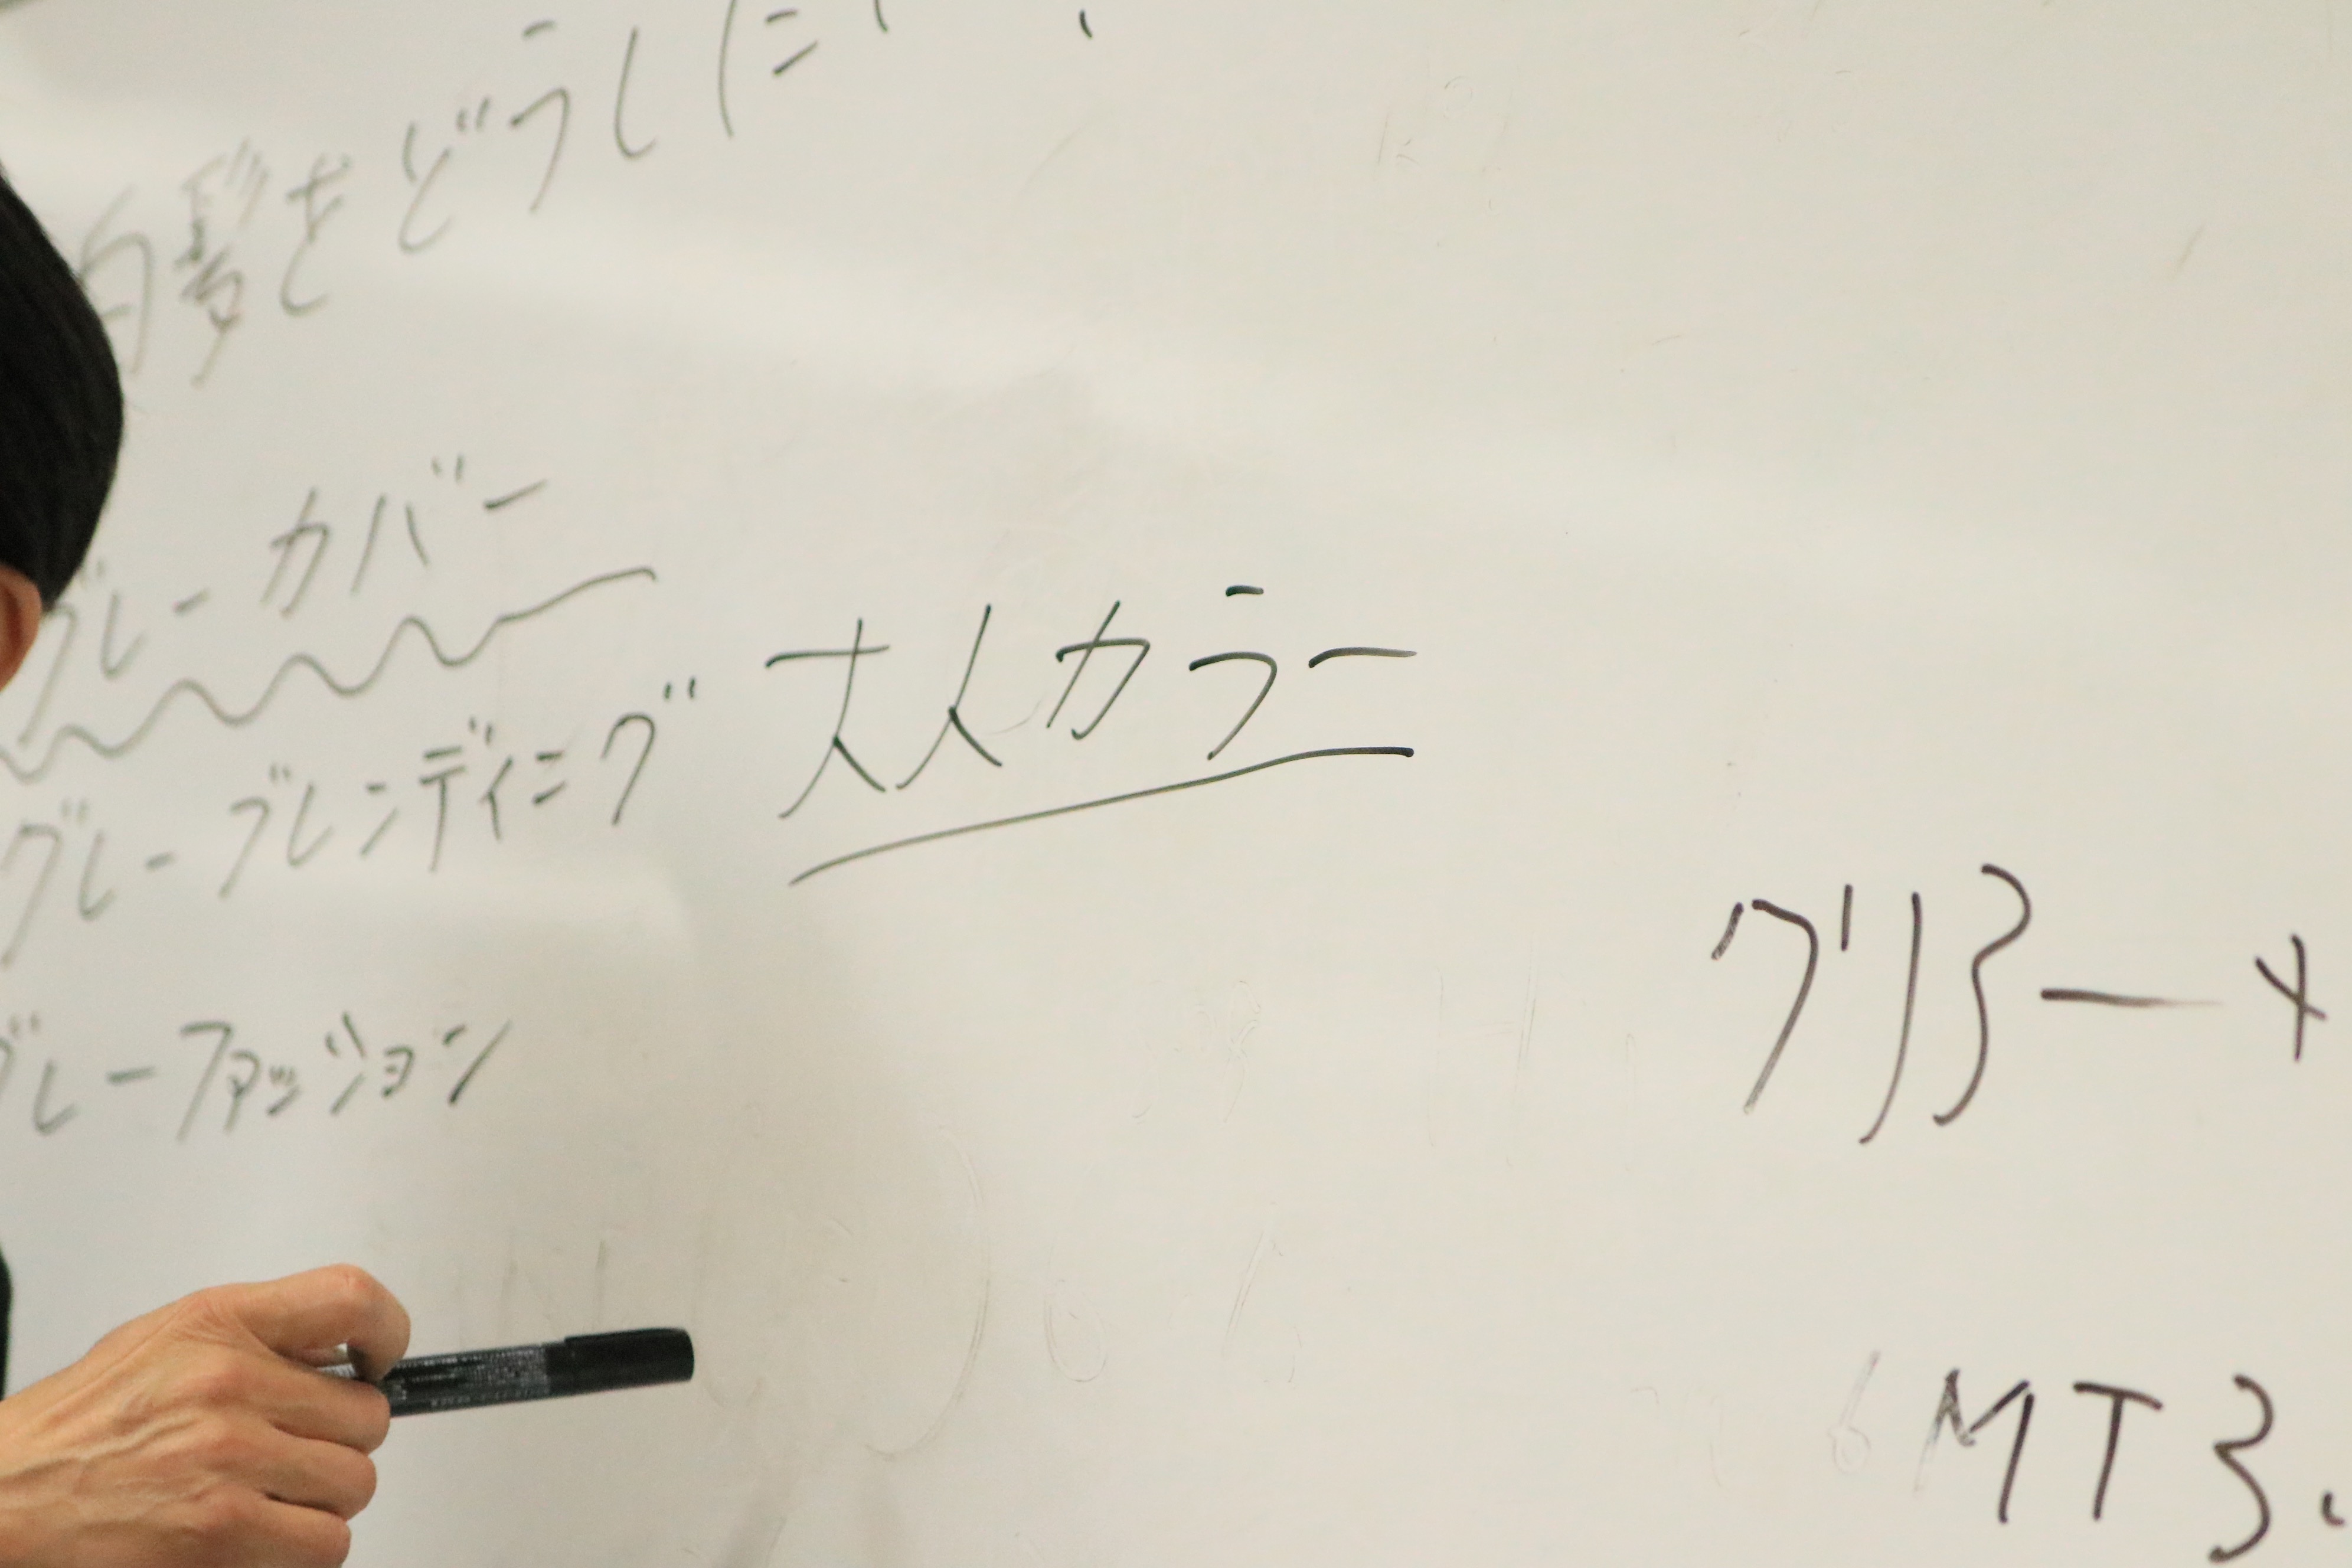 白髪をどうした
グレーカバー
グレーブレンディング 大人カラー
グレーファッション
MT3.